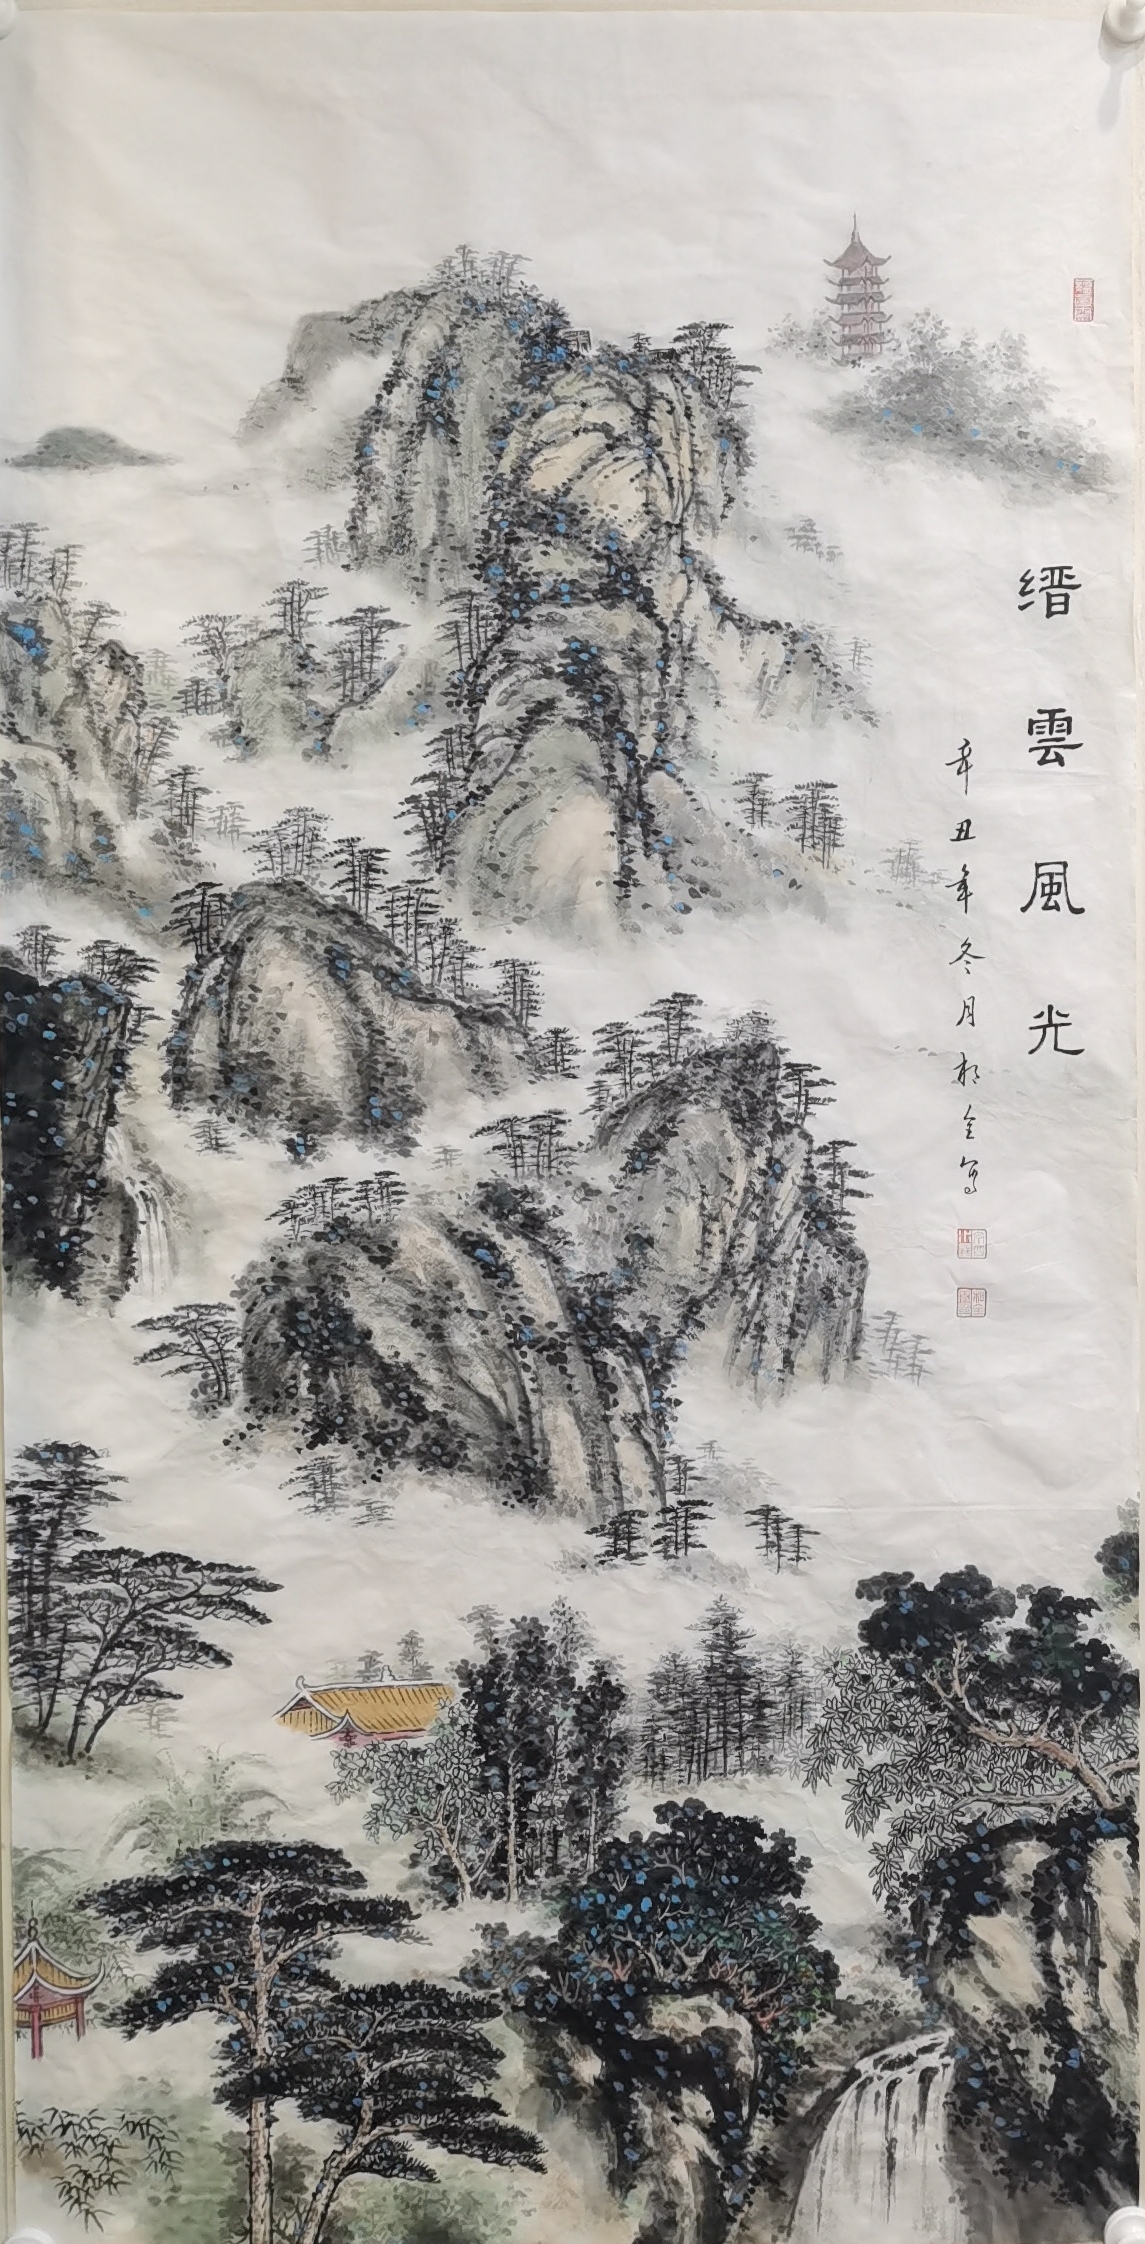 缙雲風光
辛丑年冬月相全写